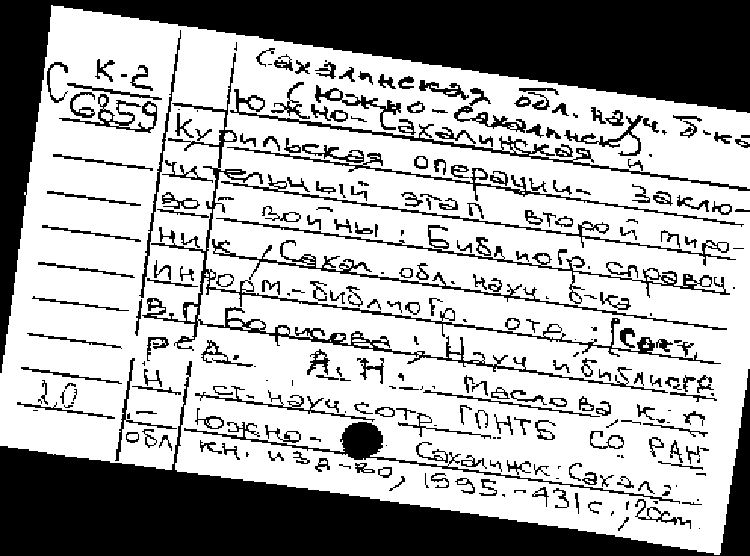 К-2
С 6859
Сахалинская обл. науч. б-ка
(Южно-Сахалинск).
Южно-Сахалинская и
Курильская операции - заклю-
чительный этап второй миро-
вой войны : Библиогр. справоч.
ник / Сахал. обл. науч. б-ка.
Информ.-библиогр. отд. ; [Сост.
В.Г. Борисова ; Науч и библиогр
ред. А.Н. Маслова, к. п
н., ст. науч. сотр ГПНТБ СО РАН
20
- Южно-Сахалинск: Сахал.
обл кн. изд-во, 1995. - 431 с.; 20см